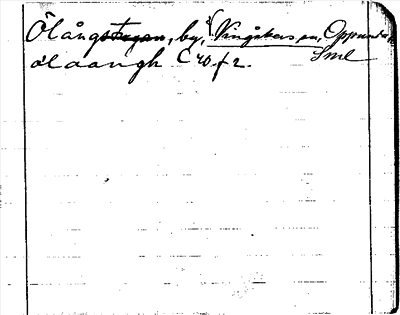 Ölångstugan, by, Vingåkers sn, Oppunda,
Sml
ölaangh C 20. f 2.